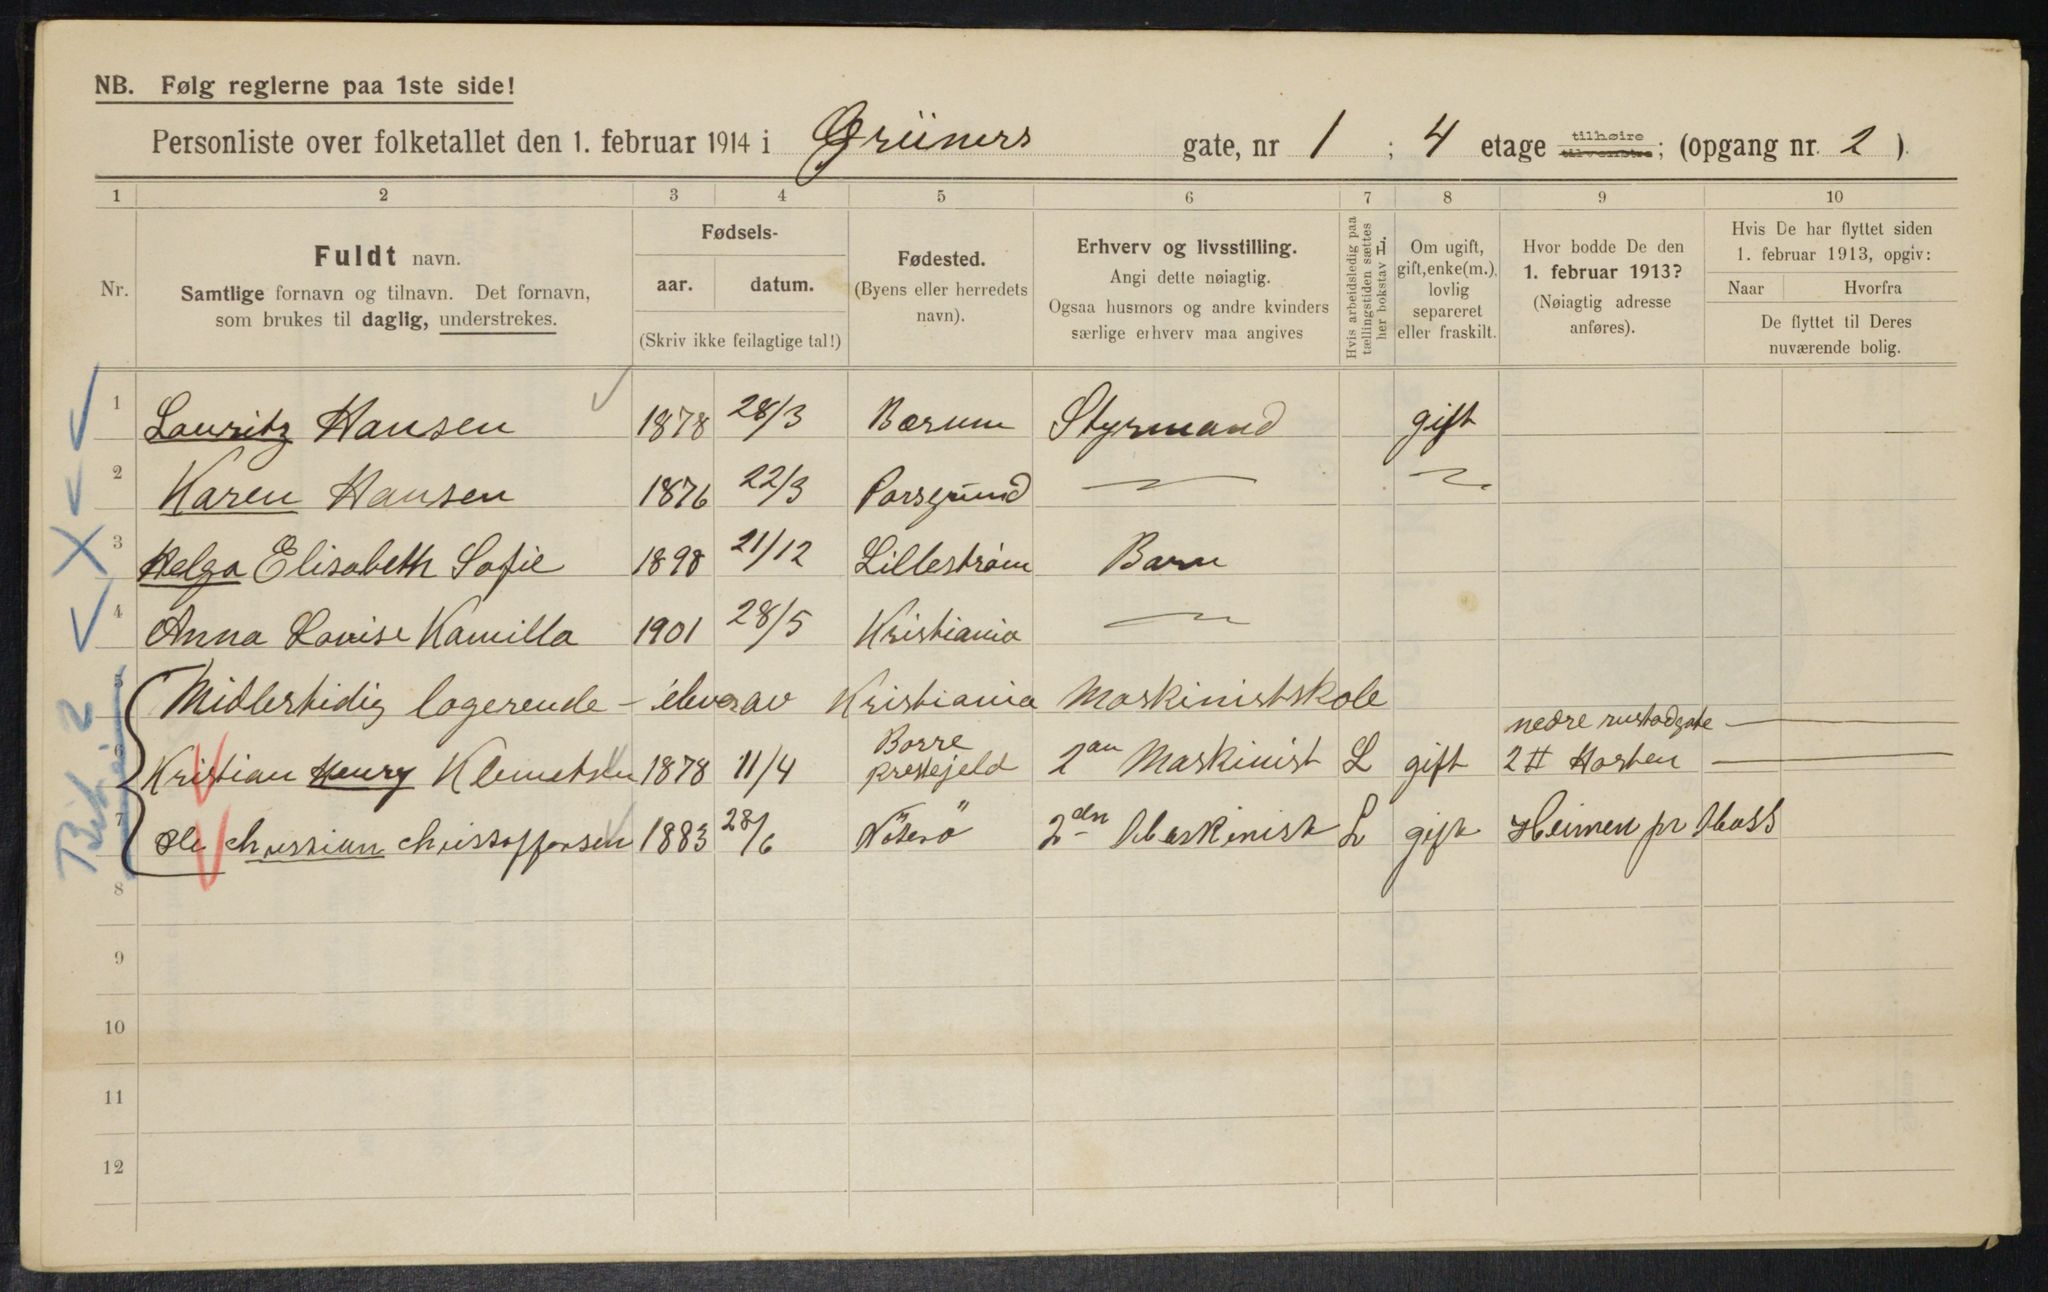 NB. Følg reglerne paa 1ste side!
Personliste over folketallet den 1. februar 1914 i Grüners gate, nr 1 ; 4 etage tilhøire tilvenstre; (opgang nr. 2 ).
1 2 3 4 5 6 7 8 9 10
Nr.
Fuldt navn.
Samtlige fornavn og tilnavn. Det fornavn,
som brukes til daglig, understrekes.
Fødsels-
aar. datum.
(Skriv ikke feilagtige tal!)
Fødested.
(Byens eller herredets
navn).
Erhverv og livsstilling.
Angi dette nøiagtig.
Ogsaa husmors og andre kvinders
særlige erhverv maa angives
Hvis arbeidsledig paa
tællingstiden sættes
her bokstav L.
Om ugift,
gift, enke(m.),
lovlig
separeret
eller fraskilt.
Hvor bodde De den
1. februar 1913?
(Nøiagtig adresse
anføres).
Hvis De har flyttet siden
1. februar 1913, opgiv:
Naar Hvorfra
De flyttet til Deres
nuværende bolig.
1 Lauritz Hansen 1878 28/3 Bærum Styrmand gift
2 Karen Hansen 1876 22/3 Porsgrund
3 Helga Elisabeth Sofie 1898 21/12 Lillestrøm Barn
4 Anna Lovise Kamilla 1901 28/5 Kristiania
5 Midlertidig logerende - elever av Kristiania Maskinistskole
6 Kristian Henry Klemetsen 1878 11/4 Borre Prestejeld 2an Maskinist L gift nedre 2 II Horten
7 Ole Christian Christoffersen 1883 28/6 Nöterö 2den Maskinist L gift Heimen pr Moss
8
9
10
11
12